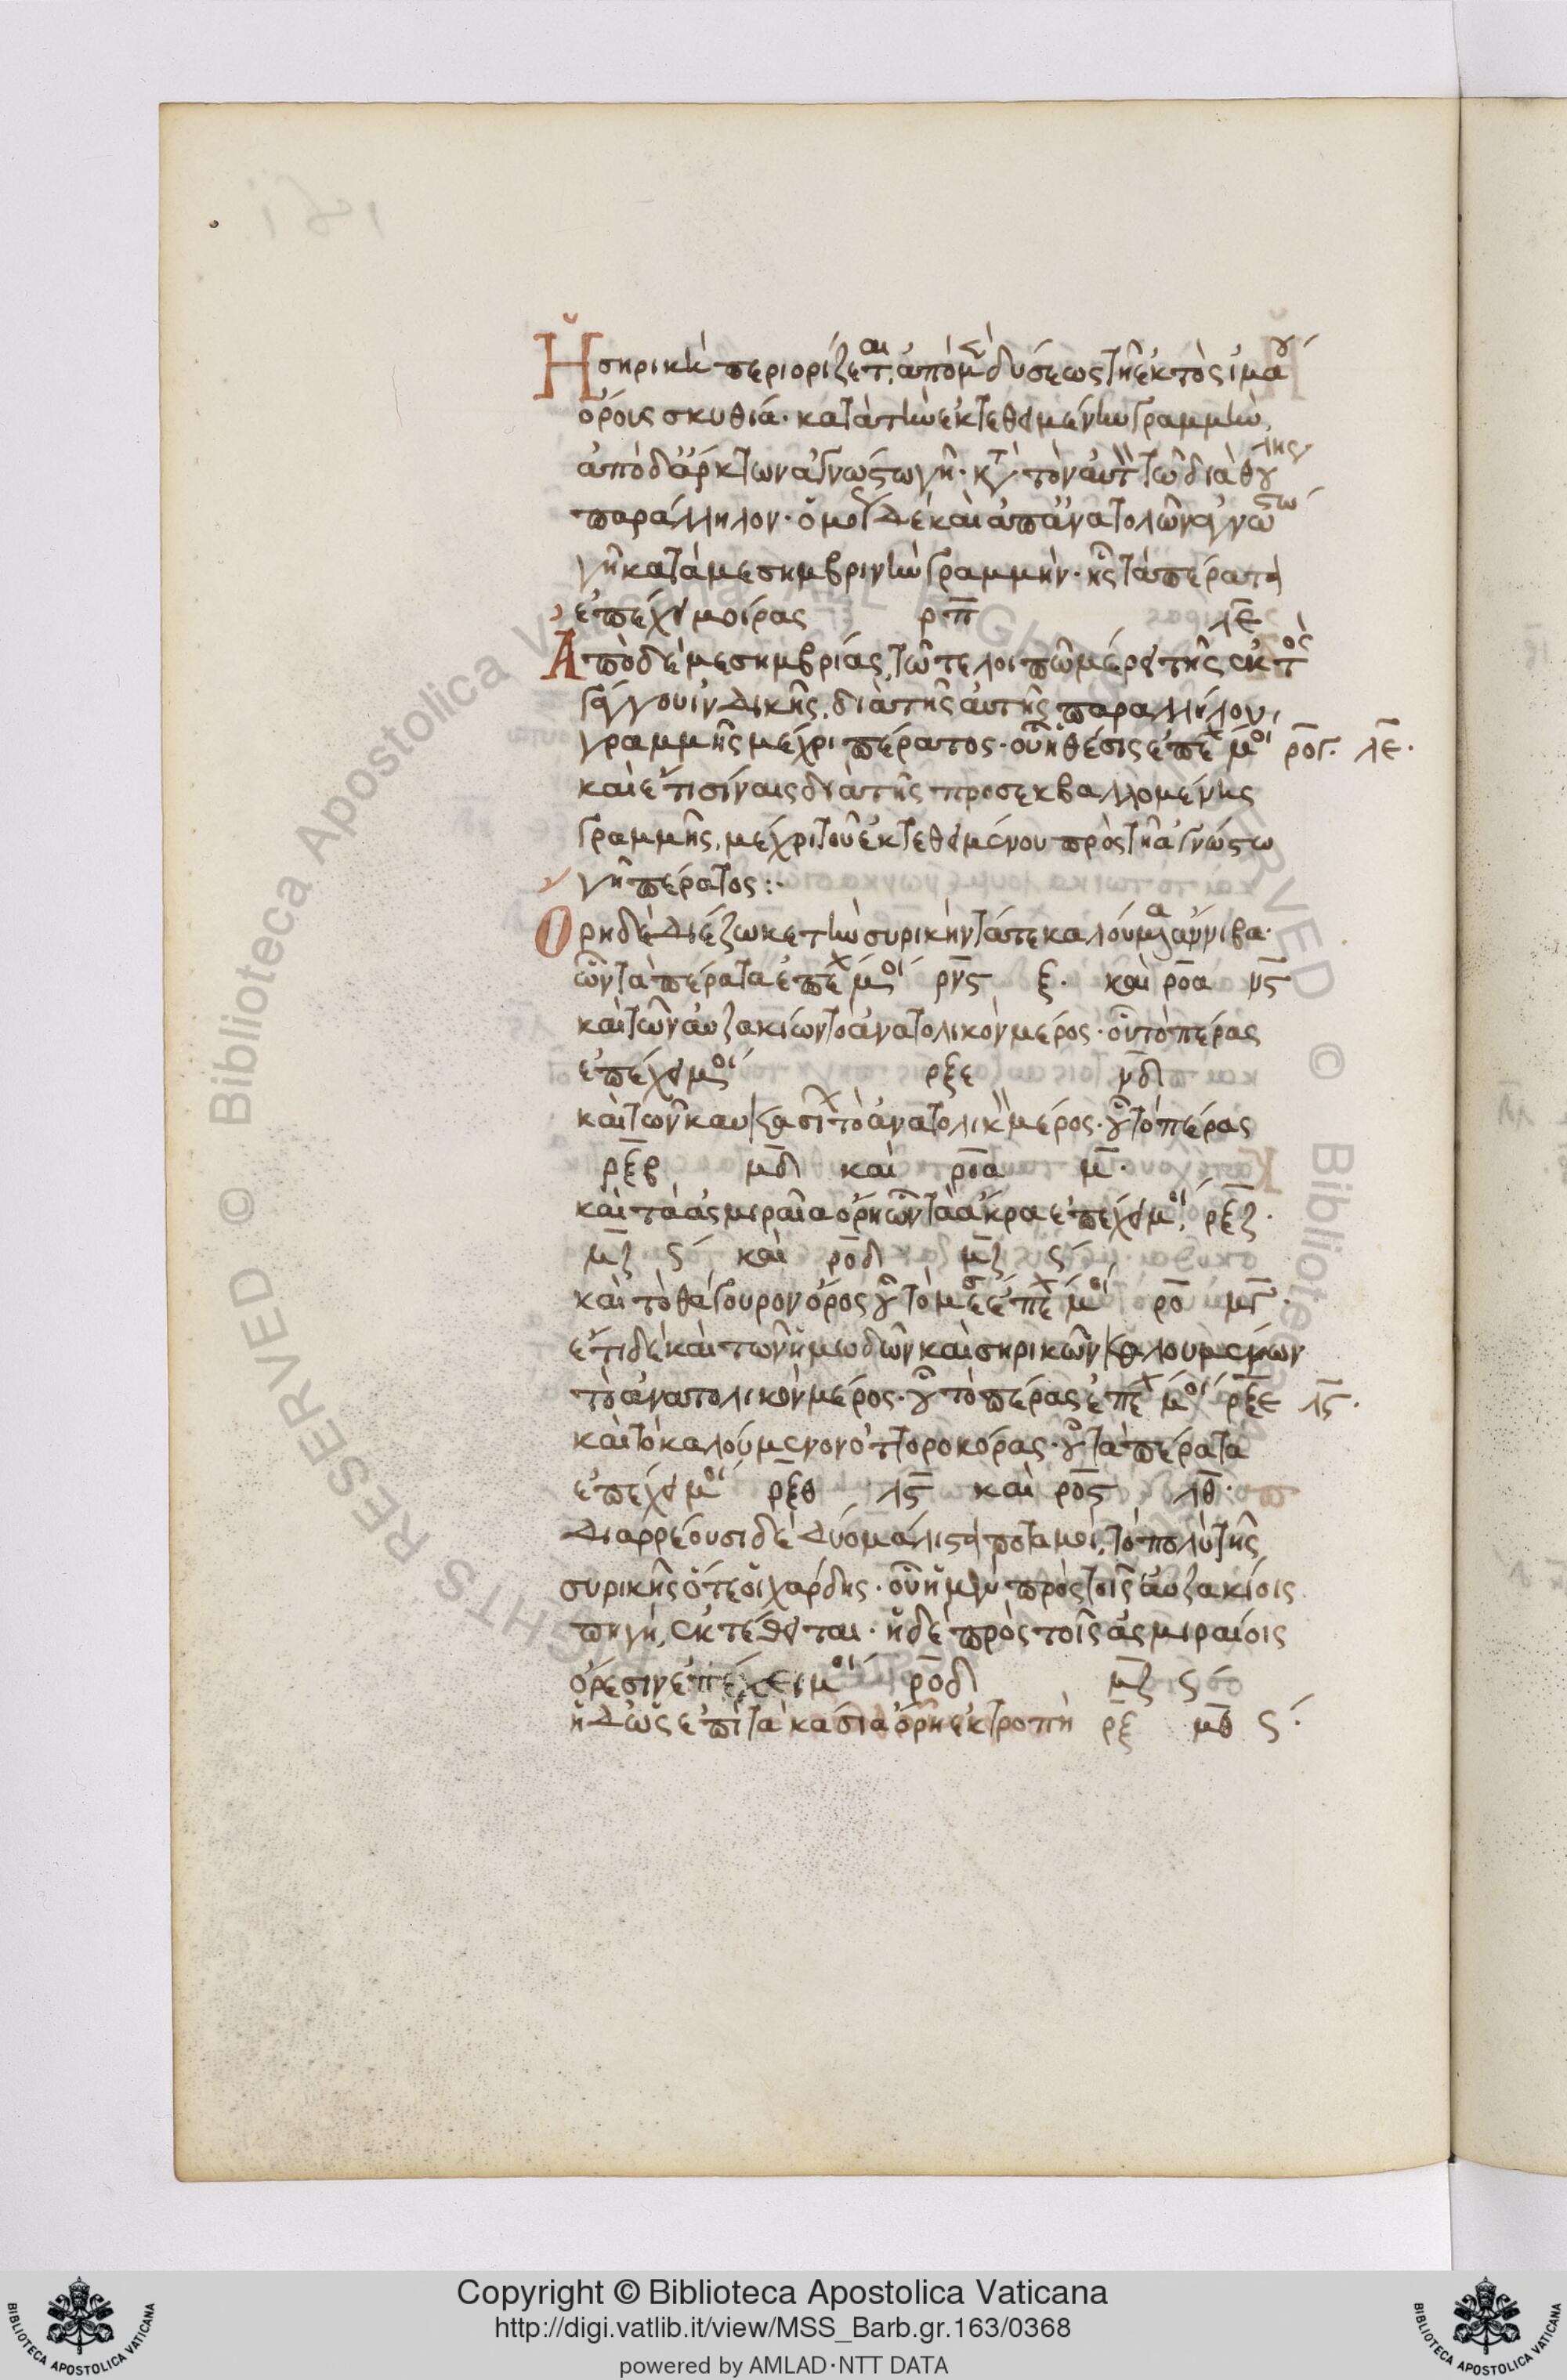 Ἡ σηρικὴ περιορίζεται, ἀπὸ μὲν δύσεως τῇ ἐκτὸς ἰμάου
ὄρους σκυθία· κατὰ τὴν ἐκτεθειμένην γραμμὴν,
ἀπὸ δὲ ἄρκτων ἀγνώστω γῆ· κατὰ τὸν αὐτὸν τῶ διὰ θούλης
παράλληλον· ὁμοῦ δὲ καὶ ἀπὸ ἀνατολῶν ἀγνώστω
γῆ κατὰ μεσημβρινὴν γραμμήν· ἧς τὰ πέρατα
ἐπέχει μοίρας ρπ λε
Ἀπὸ δὲ μεσημβρίας, τῶ τε λοιπῶ μέρει τῆς ἐκτὸς
γάγγου ἰνδικῆς, διὰ τῆς αὐτῆς παραλλήλου
γραμμῆς μέχρι πέρατος· οὗ ἡ θέσις ἐπέχ μοί ρογ· λε·
καὶ ἔτι σίναις διὰ τῆς προσεκβαλλομένης
γραμμῆς, μέχρι τοῦ ἐκτεθειμένου πρὸς τῆ ἀγνώστω
γῆ πέρατος:·
Ὄρη δὲ διέζωκε τὴν συρικὴν τά τε καλούμενα ἄννιβα·
ὧν τὰ πέρατα ἐπέχ μοί ρνς ξ· καὶ ροα νς
καὶ τῶν αὐζακίων τὸ ἀνατολικὸν μέρος· οὗ τὸ πέρας
ἐπέχει μοί ρξε νδ
καὶ τῶν καυκασί τὸ ἀνατολικὸν μέρος· οὗ τὸ πέρας
ρξβ μδ καὶ ροα μ·
καὶ τὰ ἀσμιραῖα ὄρη ὧν τὰ ἄκρα ἐπέχει μοί, ρξζ·
μζ ς καὶ ροδ μζ ς
καὶ τὸ θάγουρον ὄρος οὗ τὸ μέσ ἐπέχ μοί ρο μγ·
ἔτι δὲ καὶ τῶν ἠμωδῶν καὶ σηρικῶν καλουμένων
τὸ ἀνατολικὸν μέρος· οὗ τὸ πέρας ἐπέχ μοί ρξε λς·
καὶ τὸ καλούμενον ὀττοροκόρας· οὗ τὰ πέρατα
ἐπέχει μοί ρξθ λς καὶ ρος λθ·
Διαρρέουσι δὲ δύο μάλιστα ποταμοί, τὸ πολὺ τῆς
συρικῆς ὅ τε οἰχάρδης· οὗ ἡ μὲν πρὸς τοῖς αὐζακίοις
πηγὴ, ἐκτέθειται· ἡ δὲ πρὸς τοῖς ἀσμιραίοις
ὄρεσιν ἐπέχει μοί ροδ μζ ς
ἡ δ' ὡς ἐπὶ τὰ κάσια ὄρη ἐκτροπὴ ρξ μθ ς·
Copyright © Biblioteca Apostolica Vaticana
http://digi.vatlib.it/view/MSS_Barb.gr.163/0368
powered by AMLAD·NTT DATA